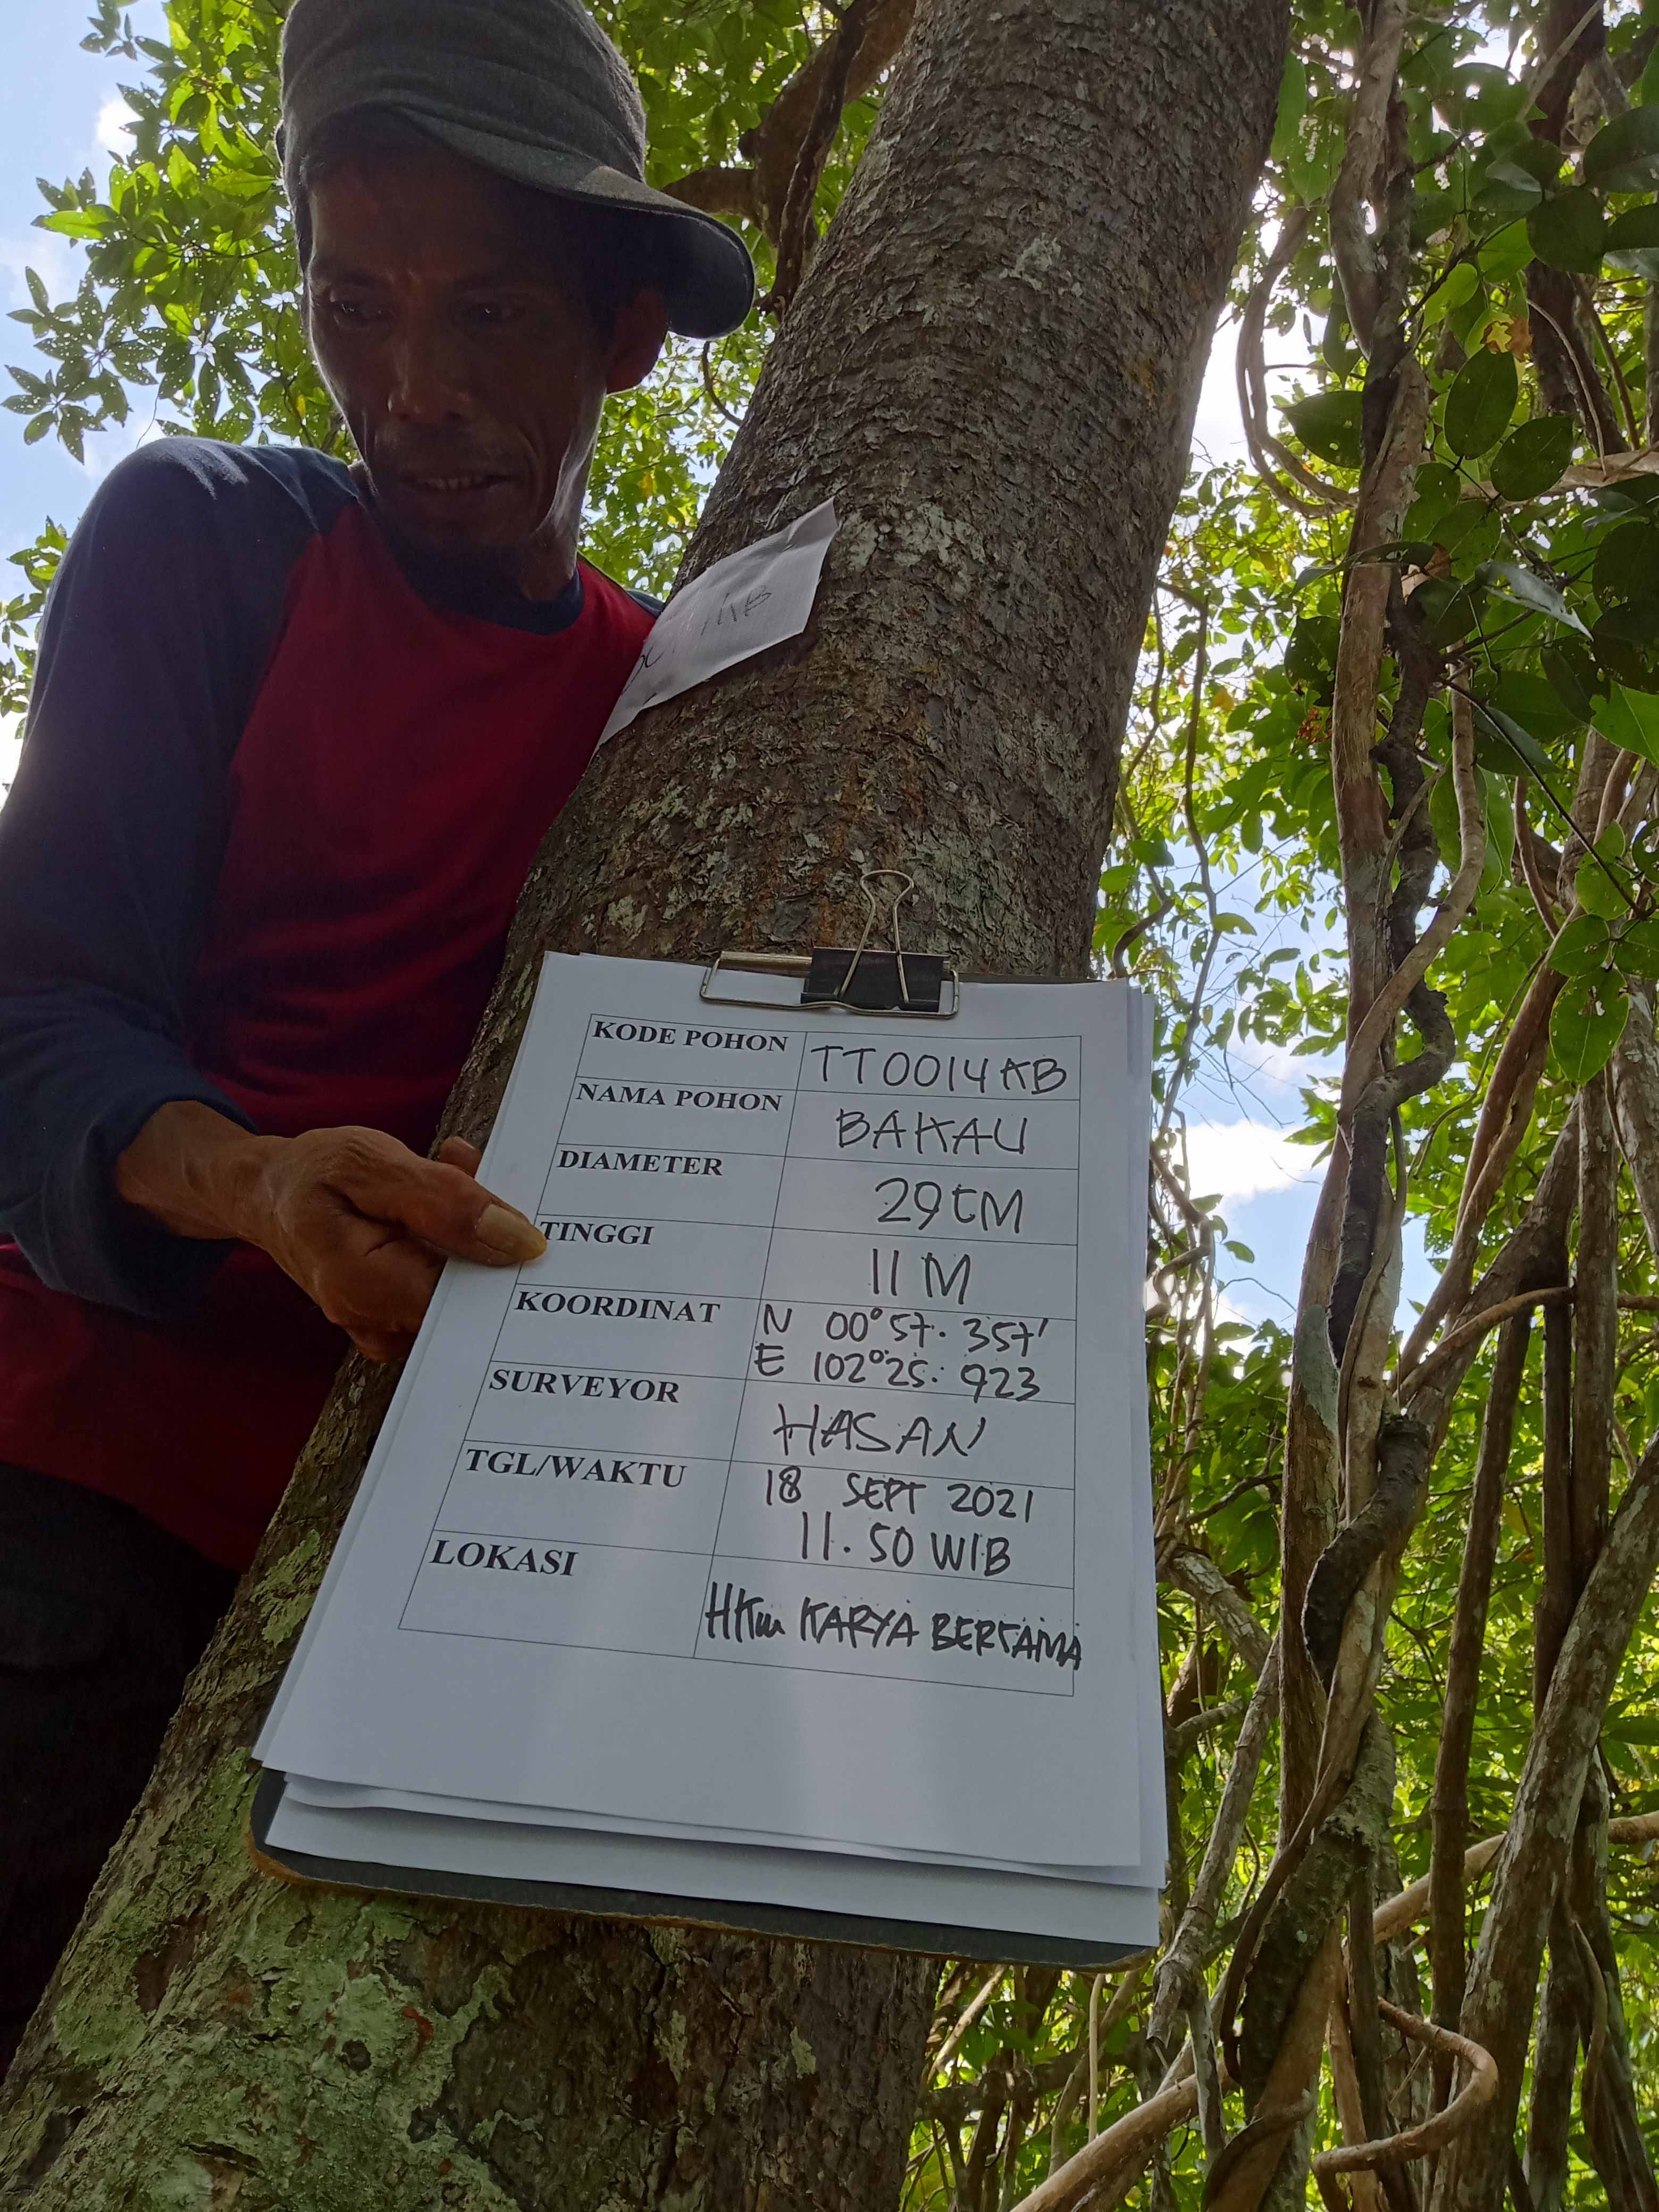 KODE POHON TT0014KB
NAMA POHON BAKAU
DIAMETER 29CM
TINGGI 11 M
KOORDINAT N 00°57. 357'
E 102°25. 923
SURVEYOR HASAN
TGL/WAKTU 18 SEPT 2021
11.50 WIB
LOKASI HKm KARYA BERSAMA